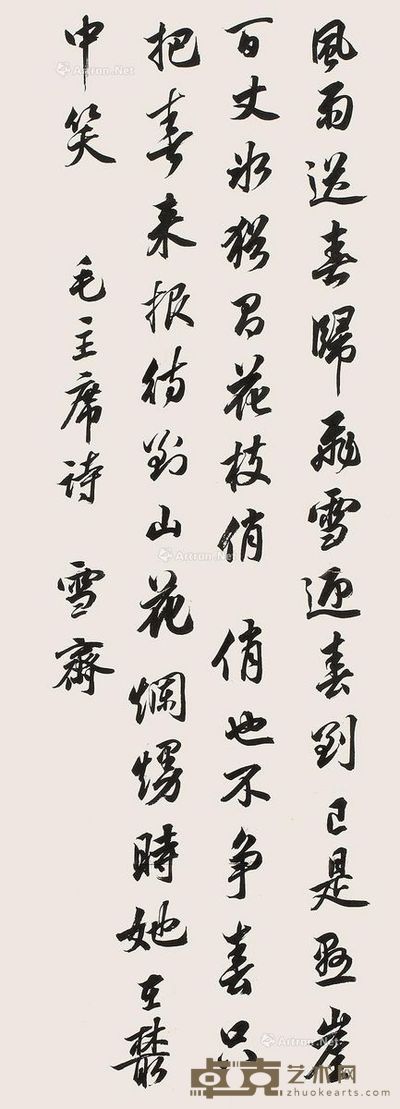 風雨送春歸飛雪迎春到已是懸崖
百丈冰猶有花枝俏 俏也不争春只
把春来报待到山花爛熳時她在叢
中笑 毛主席诗 雪齋
Artron.Net
Artron.Net
Artron.Net
卓克艺术网
zhuokearts.com